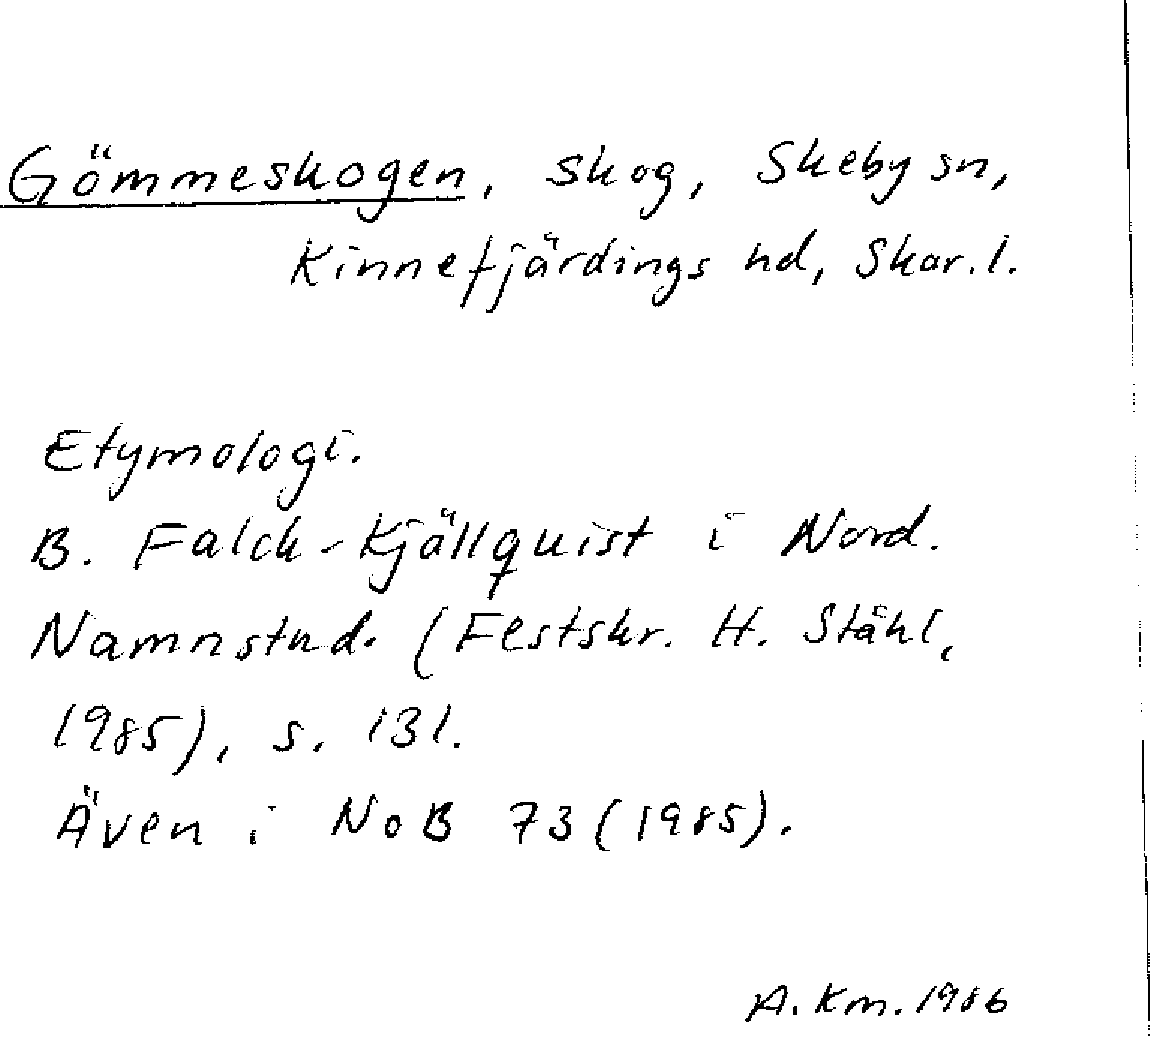 Gömmeskogen, skog, Skeby sn,
Kinnefjärdings hd, Skar. l.
Etymologi.
B. Falck-Kjällquist i Nord.
Namnstud. (Festskr. H. Ståhl,
1985), s. 131.
Även i NoB 73 (1985).
A. Km. 1986